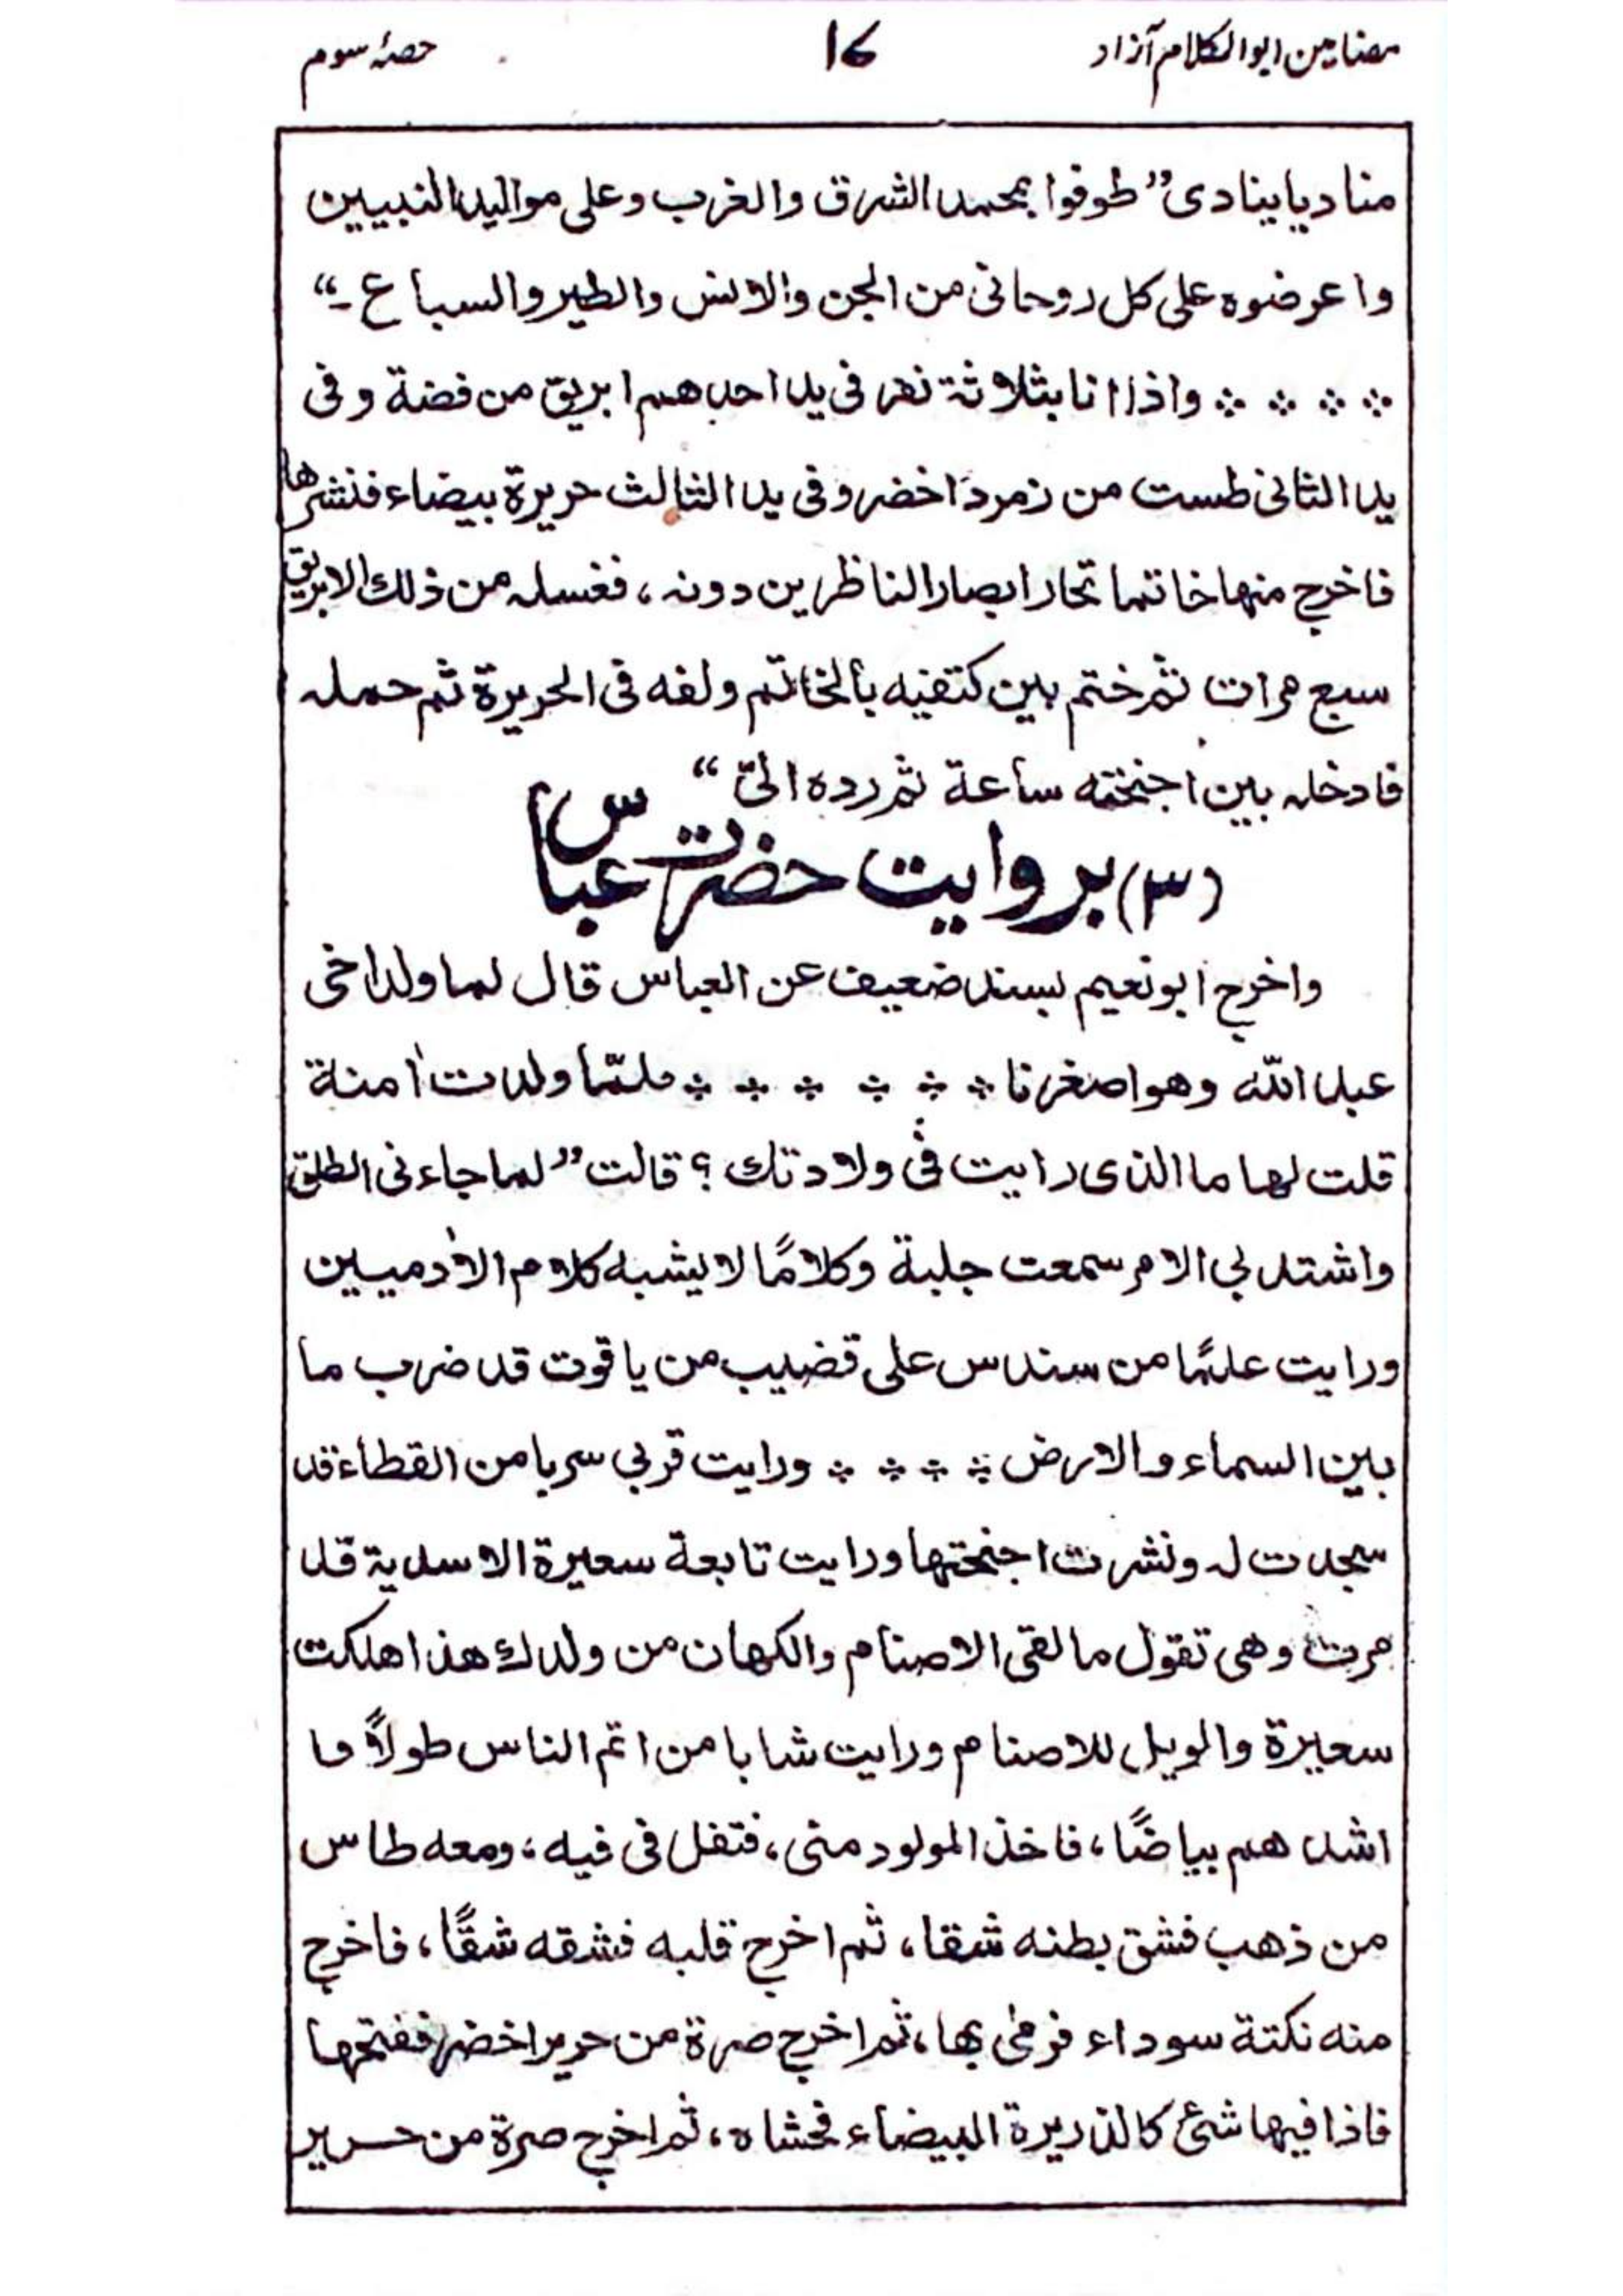 مضامین ابوالکلام آزاد
16
حصۂ سوم
منادیا ینادی ”طوفوا بمحمد الشرق والغرب وعلی موالید النبیین
واعرضوہ علی کل روحانی من الجن والانس والطیر والسباع ۔“
؞ ؞ ؞ ؞ واذا انا بثلاثة نفر فی ید احدهم ابریق من فضة وفی
ید الثانی طست من زمرد اخضر وفی ید الثالث حریرة بیضاء فنشرها
فاخرج منها خاتما تحار ابصار الناظرین دونه، فغسله من ذلك الابریق
سبع مرات ثم ختم بین کتفیه بالخاتم ولفه فی الحریرة ثم حمله
فادخله بین اجنحته ساعة ثم ردہ الیّ“
(۳) بروایت حضرت عباس
واخرج ابونعیم بسند ضعیف عن العباس قال لما ولد اخی
عبد اللّٰه وهو اصغرنا ؞ ؞ ؞ ؞ ؞ ؞ فلمّا ولدت اٰمنة
قلت لها ما الذی رایت فی ولادتك ؟ قالت ”لما جاءنی الطلق
واشتد بی الامر سمعت جلبة وکلامًا لا یشبه کلام الاٰدمیین
ورایت علمًا من سندس علی قضیب من یاقوت قد ضرب ما
بین السماء والارض ؞ ؞ ؞ ؞ ورایت قربی سربا من القطاء قد
سجدت له ونشرت اجنحتها ورایت تابعة سعیرة الاسدیة قد
مرت وهی تقول ما لقی الاصنام والکهان من ولدك هذا هلکت
سعیرة والویل للاصنام ورایت شابا من اتم الناس طولاً وا
اشدهم بیاضًا، فاخذ المولود منی، فتفل فی فیه، ومعه طاس
من ذهب فشق بطنه شقا، ثم اخرج قلبه فشقه شقًا، فاخرج
منه نکتة سوداء فرمی بها، ثم اخرج صرة من حریر اخضر ففتحها
فاذا فیها شئ کالذریرة البیضاء فحشاہ، ثم اخرج صرة من حریر